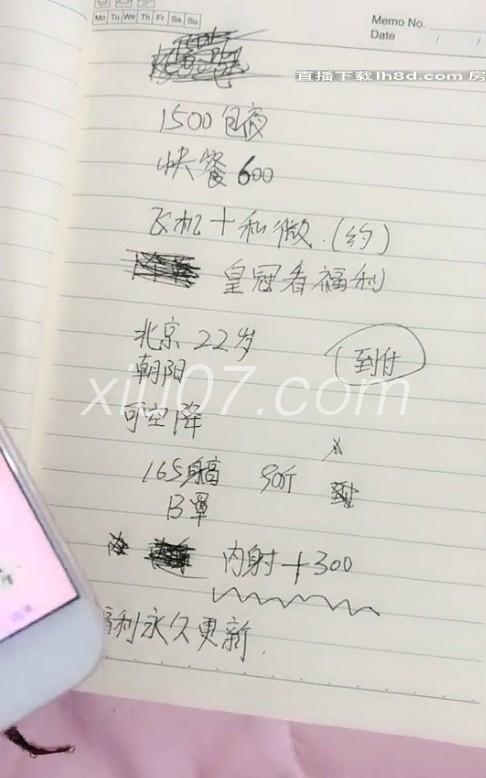 Mo Tu We Th Fr Sa Su
Memo No.
Date / /
直播下载lh8d.com 房
1500包夜
快餐600
飞机+私微.(约)
皇冠看福利
北京 22岁
到付
朝阳
xiu07.com
可空降
165身高 90斤
B罩
内射+300
福利永久更新.